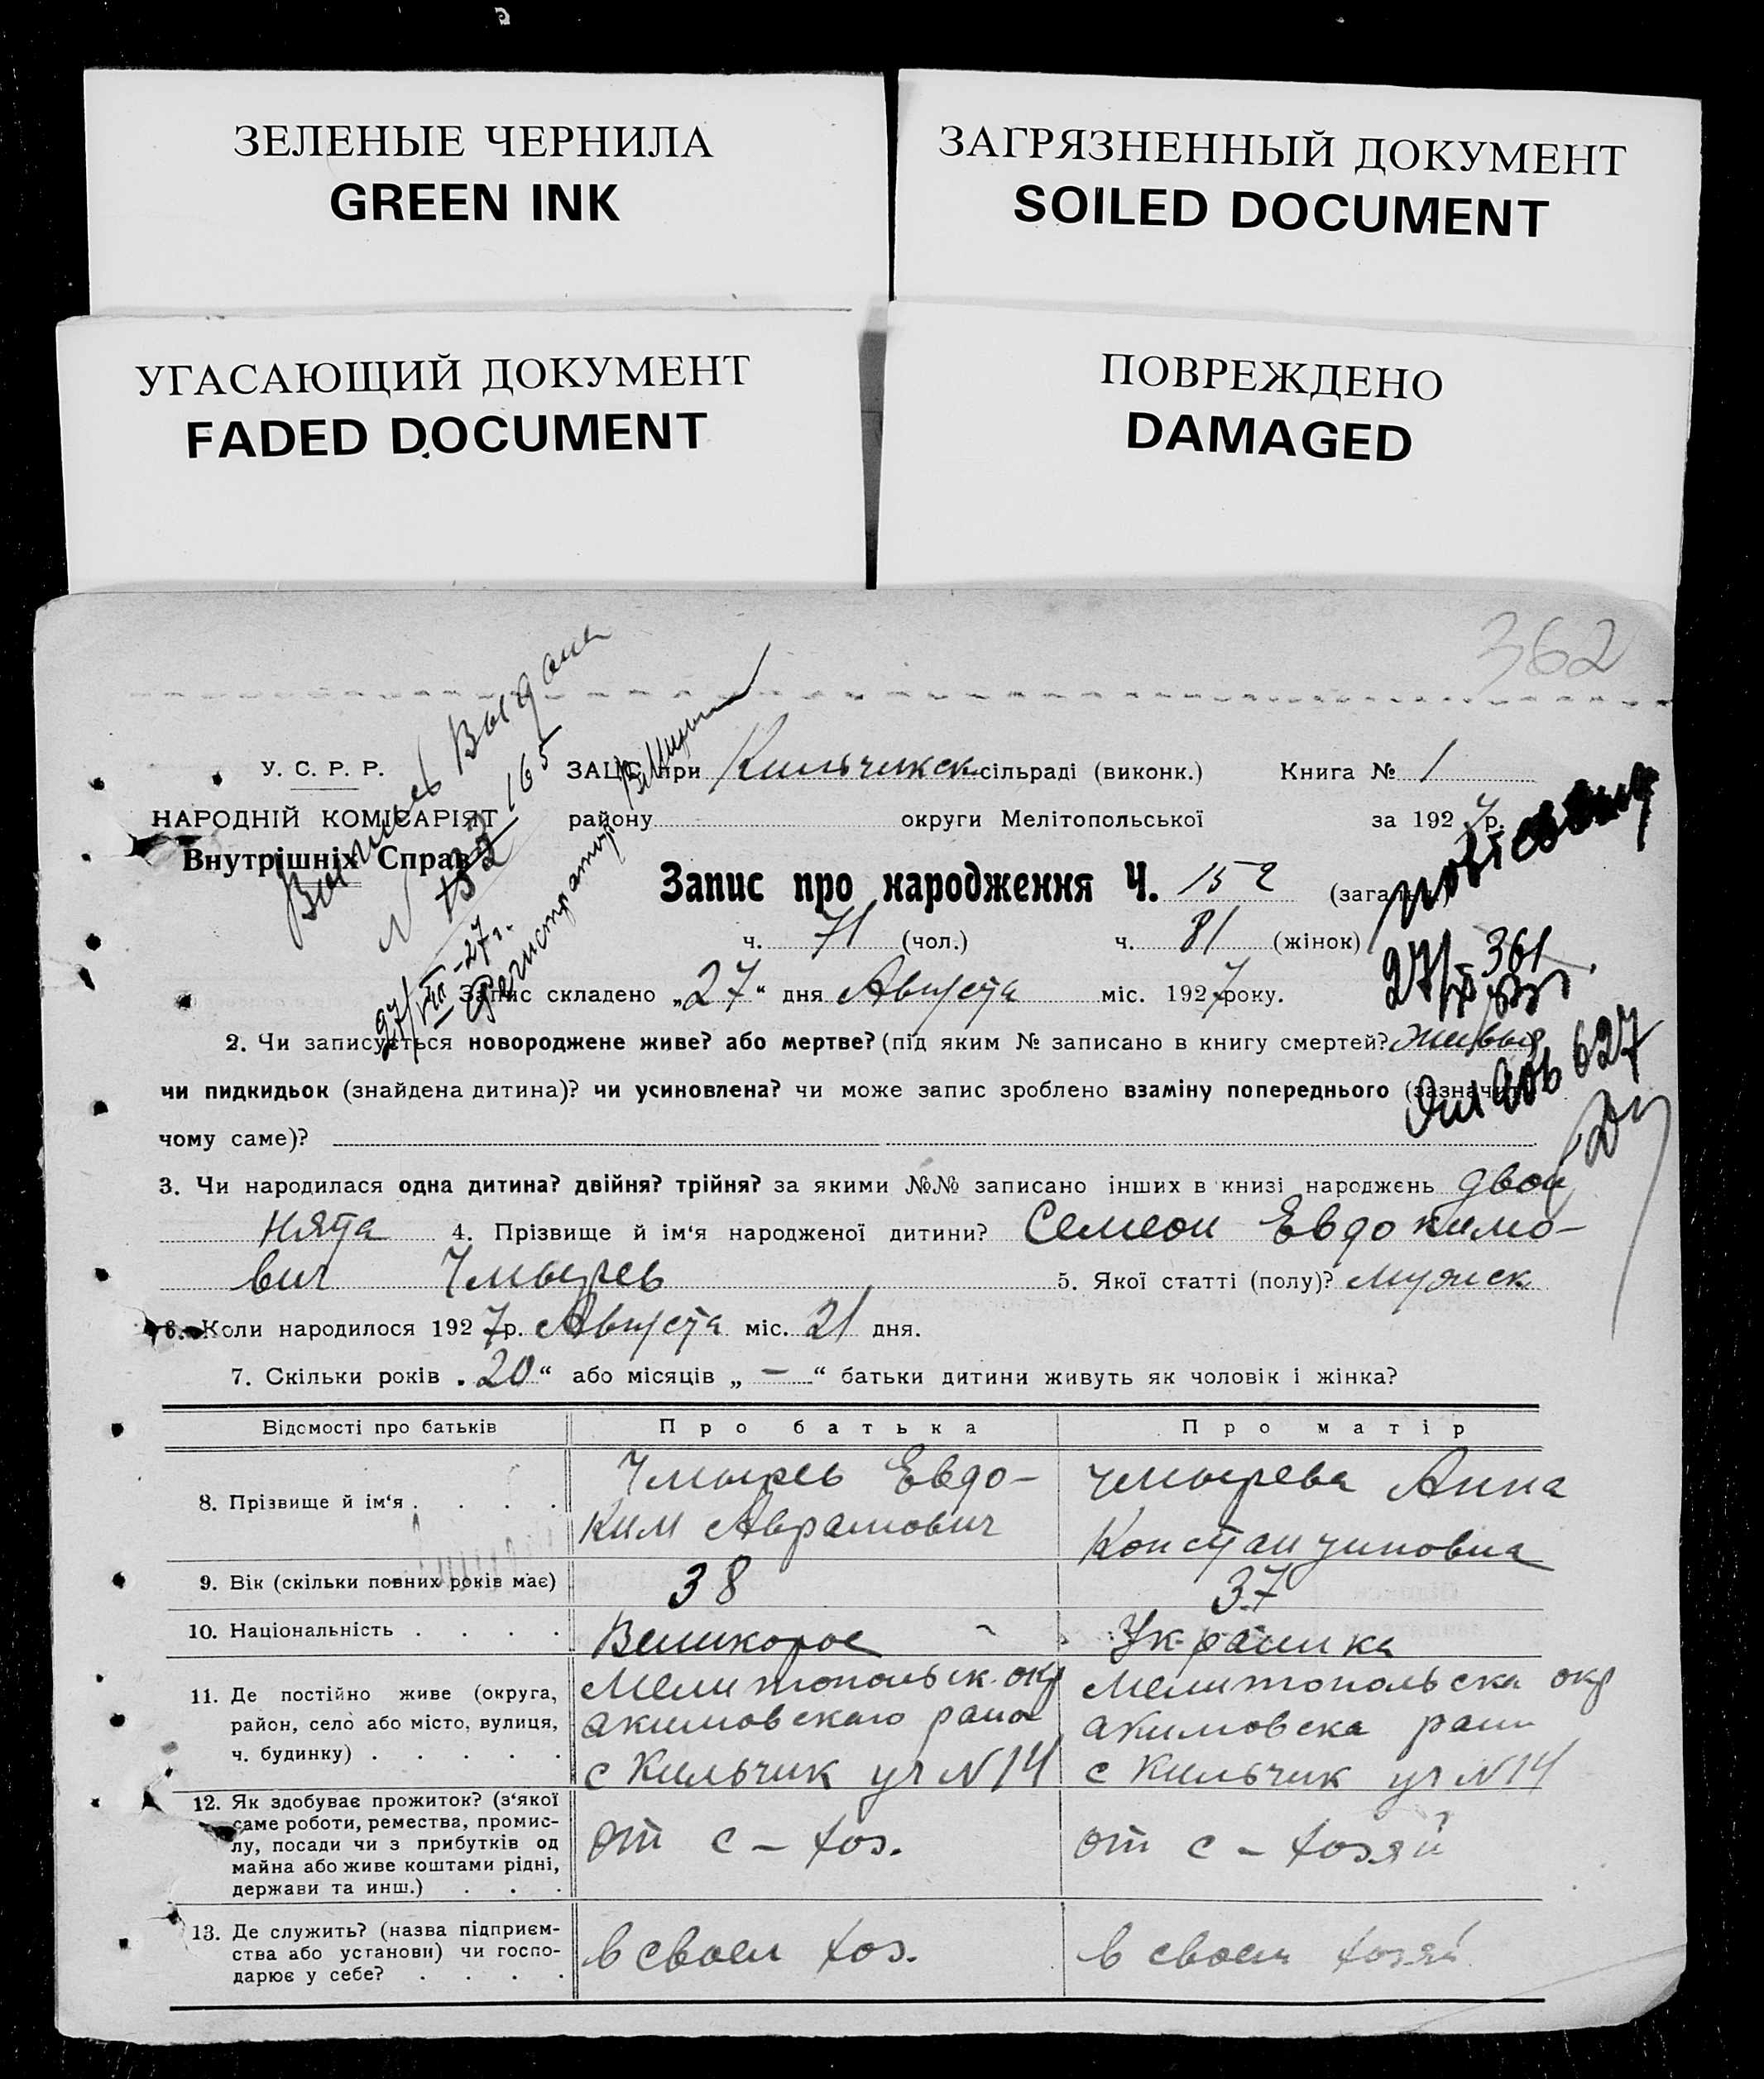 ЗЕЛЕНЫЕ ЧЕРНИЛА
GREEN INK
ЗАГРЯЗНЕННЫЙ ДОКУМЕНТ
SOILED DOCUMENT
УГАСАЮЩИЙ ДОКУМЕНТ
FADED DOCUMENT
ПОВРЕЖДЕНО
DAMAGED
362
Выпись Выдана
N 165
27/VIII-27г.
Регистратор
У. С. Р. Р.
НАРОДНІЙ КОМІСАРІЯТ
Внутрішніх Справ
ЗАЦС при Кильчикск сільраді (виконк.) Книга № 1
району округи Мелітопольської за 1927 р.
Запис про народження Ч. 152 (загальн.)
ч. 71 (чол.) ч. 81 (жінок)
361
627
Запис складено „27“ дня Августа міс. 1927 року.
2. Чи записується новороджене живе? або мертве? (під яким № записано в книгу смертей? живыя
чи пидкидьок (знайдена дитина)? чи усиновлена? чи може запис зроблено взаміну попереднього (зазначить
чому саме)?
3. Чи народилася одна дитина? двійня? трійня? за якими №№ записано інших в книзі народжень двой
нята 4. Прізвище й ім'я народженої дитини? Семеон Евдокимо-
вич Чмырев 5. Якої статті (полу)? мужск
6. Коли народилося 1927 р. Августа міс. 21 дня.
7. Скільки років „20“ або місяців „ — “ батьки дитини живуть як чоловік і жінка?
Відомості про батьків Про батька Про матір
8. Прізвище й ім'я . . . .
Чмырев Евдо-
ким Аврамович
Чмырева Анна
Константиновна
9. Вік (скільки повних років має) 38 37
10. Національність . . . . Великорос Украинка
11. Де постійно живе (округа,
район, село або місто, вулиця,
ч. будинку) . . . . .
Мелитопольск. окр
акимовскаго раиа
с Кильчик ул N14
Мелитопольска окр
акимовска раин
с Кильчик ул N14
12. Як здобуває прожиток? (з'якої
саме роботи, ремества, промис-
лу, посади чи з прибутків од
майна або живе коштами рідні,
держави та инш.) . . .
от с – хоз.
от с – хозяй
13. Де служить? (назва підприєм-
ства або установи) чи госпо-
дарює у себе? . . . .
в своем хоз.
в своем хозяй